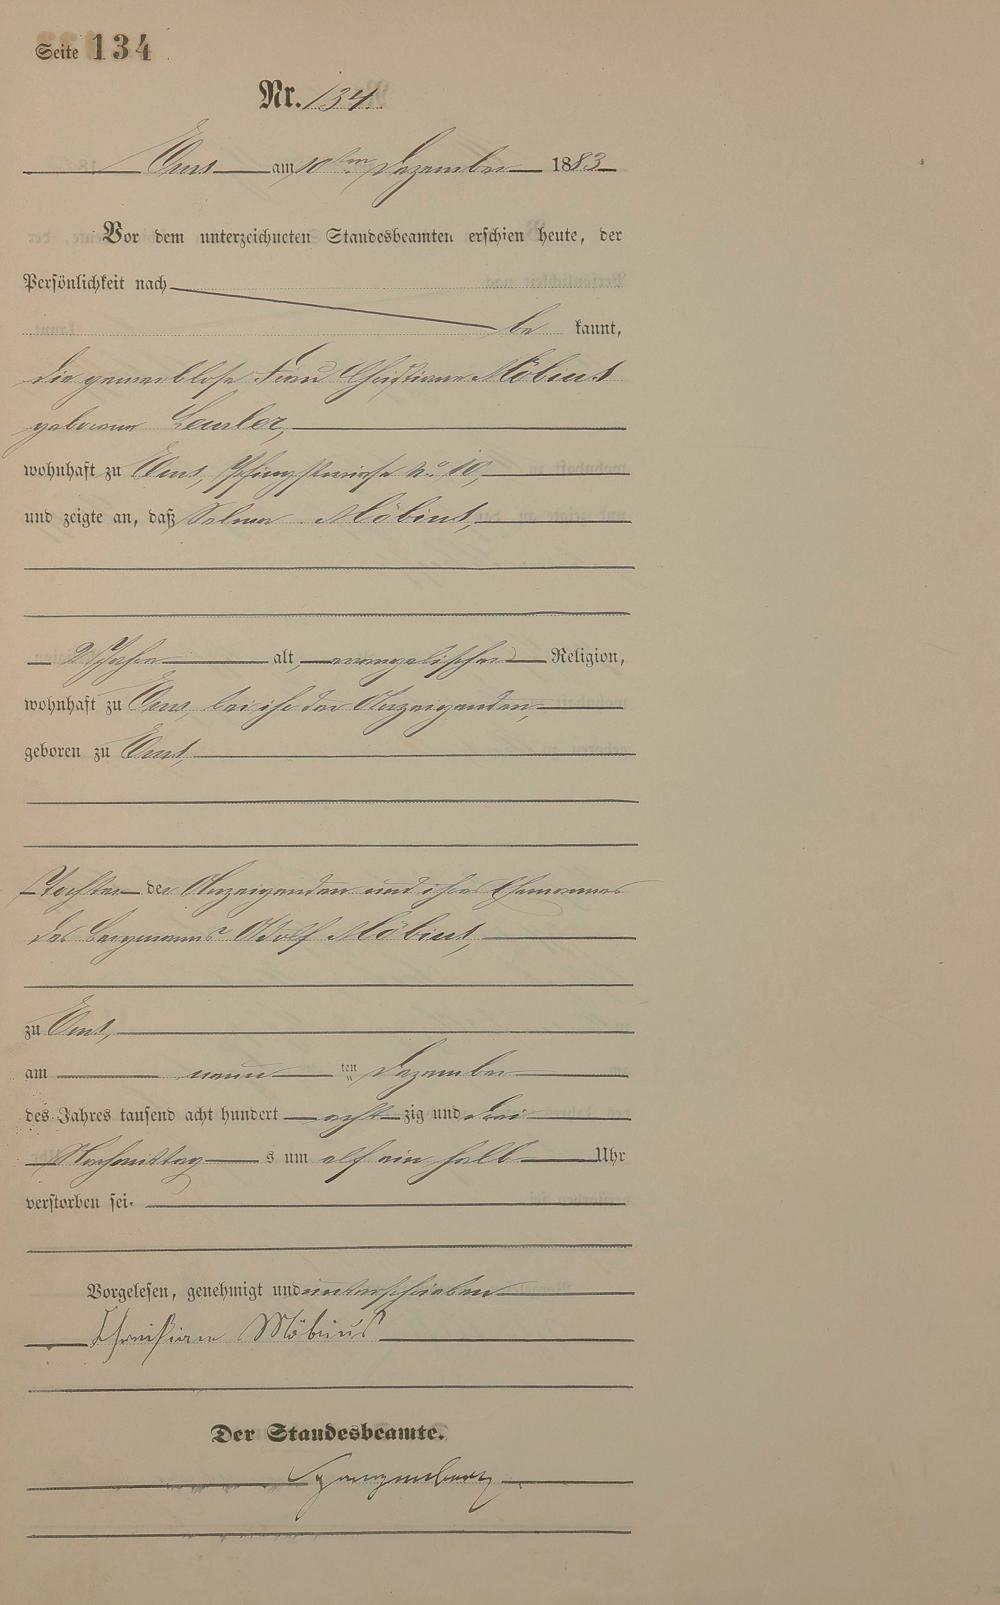 Seite 134
Nr. 134.
Ems am 10ten Dezember 1883
Vor dem unterzeichneten Standesbeamten erschien heute, der
Persönlichkeit nach
be kannt,
die gewerblose Frau Christiane Möbius
geborene
wohnhaft zu Ems, Pfingstwiese No 10,
und zeigte an, daß Selma Möbius,
Jahre alt, evangelischer Religion,
wohnhaft zu Ems, bei ihr der Anzeigenden,
geboren zu Ems,
Tochter der Anzeigenden und ihres Ehemannes
des Bergmanns Adolf Möbius,
zu Ems,
am neun ten Dezember
des Jahres tausend acht hundert acht zig und drei
Nachmittag s um elf ein halb Uhr
verstorben sei.
Vorgelesen, genehmigt und unterschrieben
Christiane Möbius
Der Standesbeamte.
Spangenberg